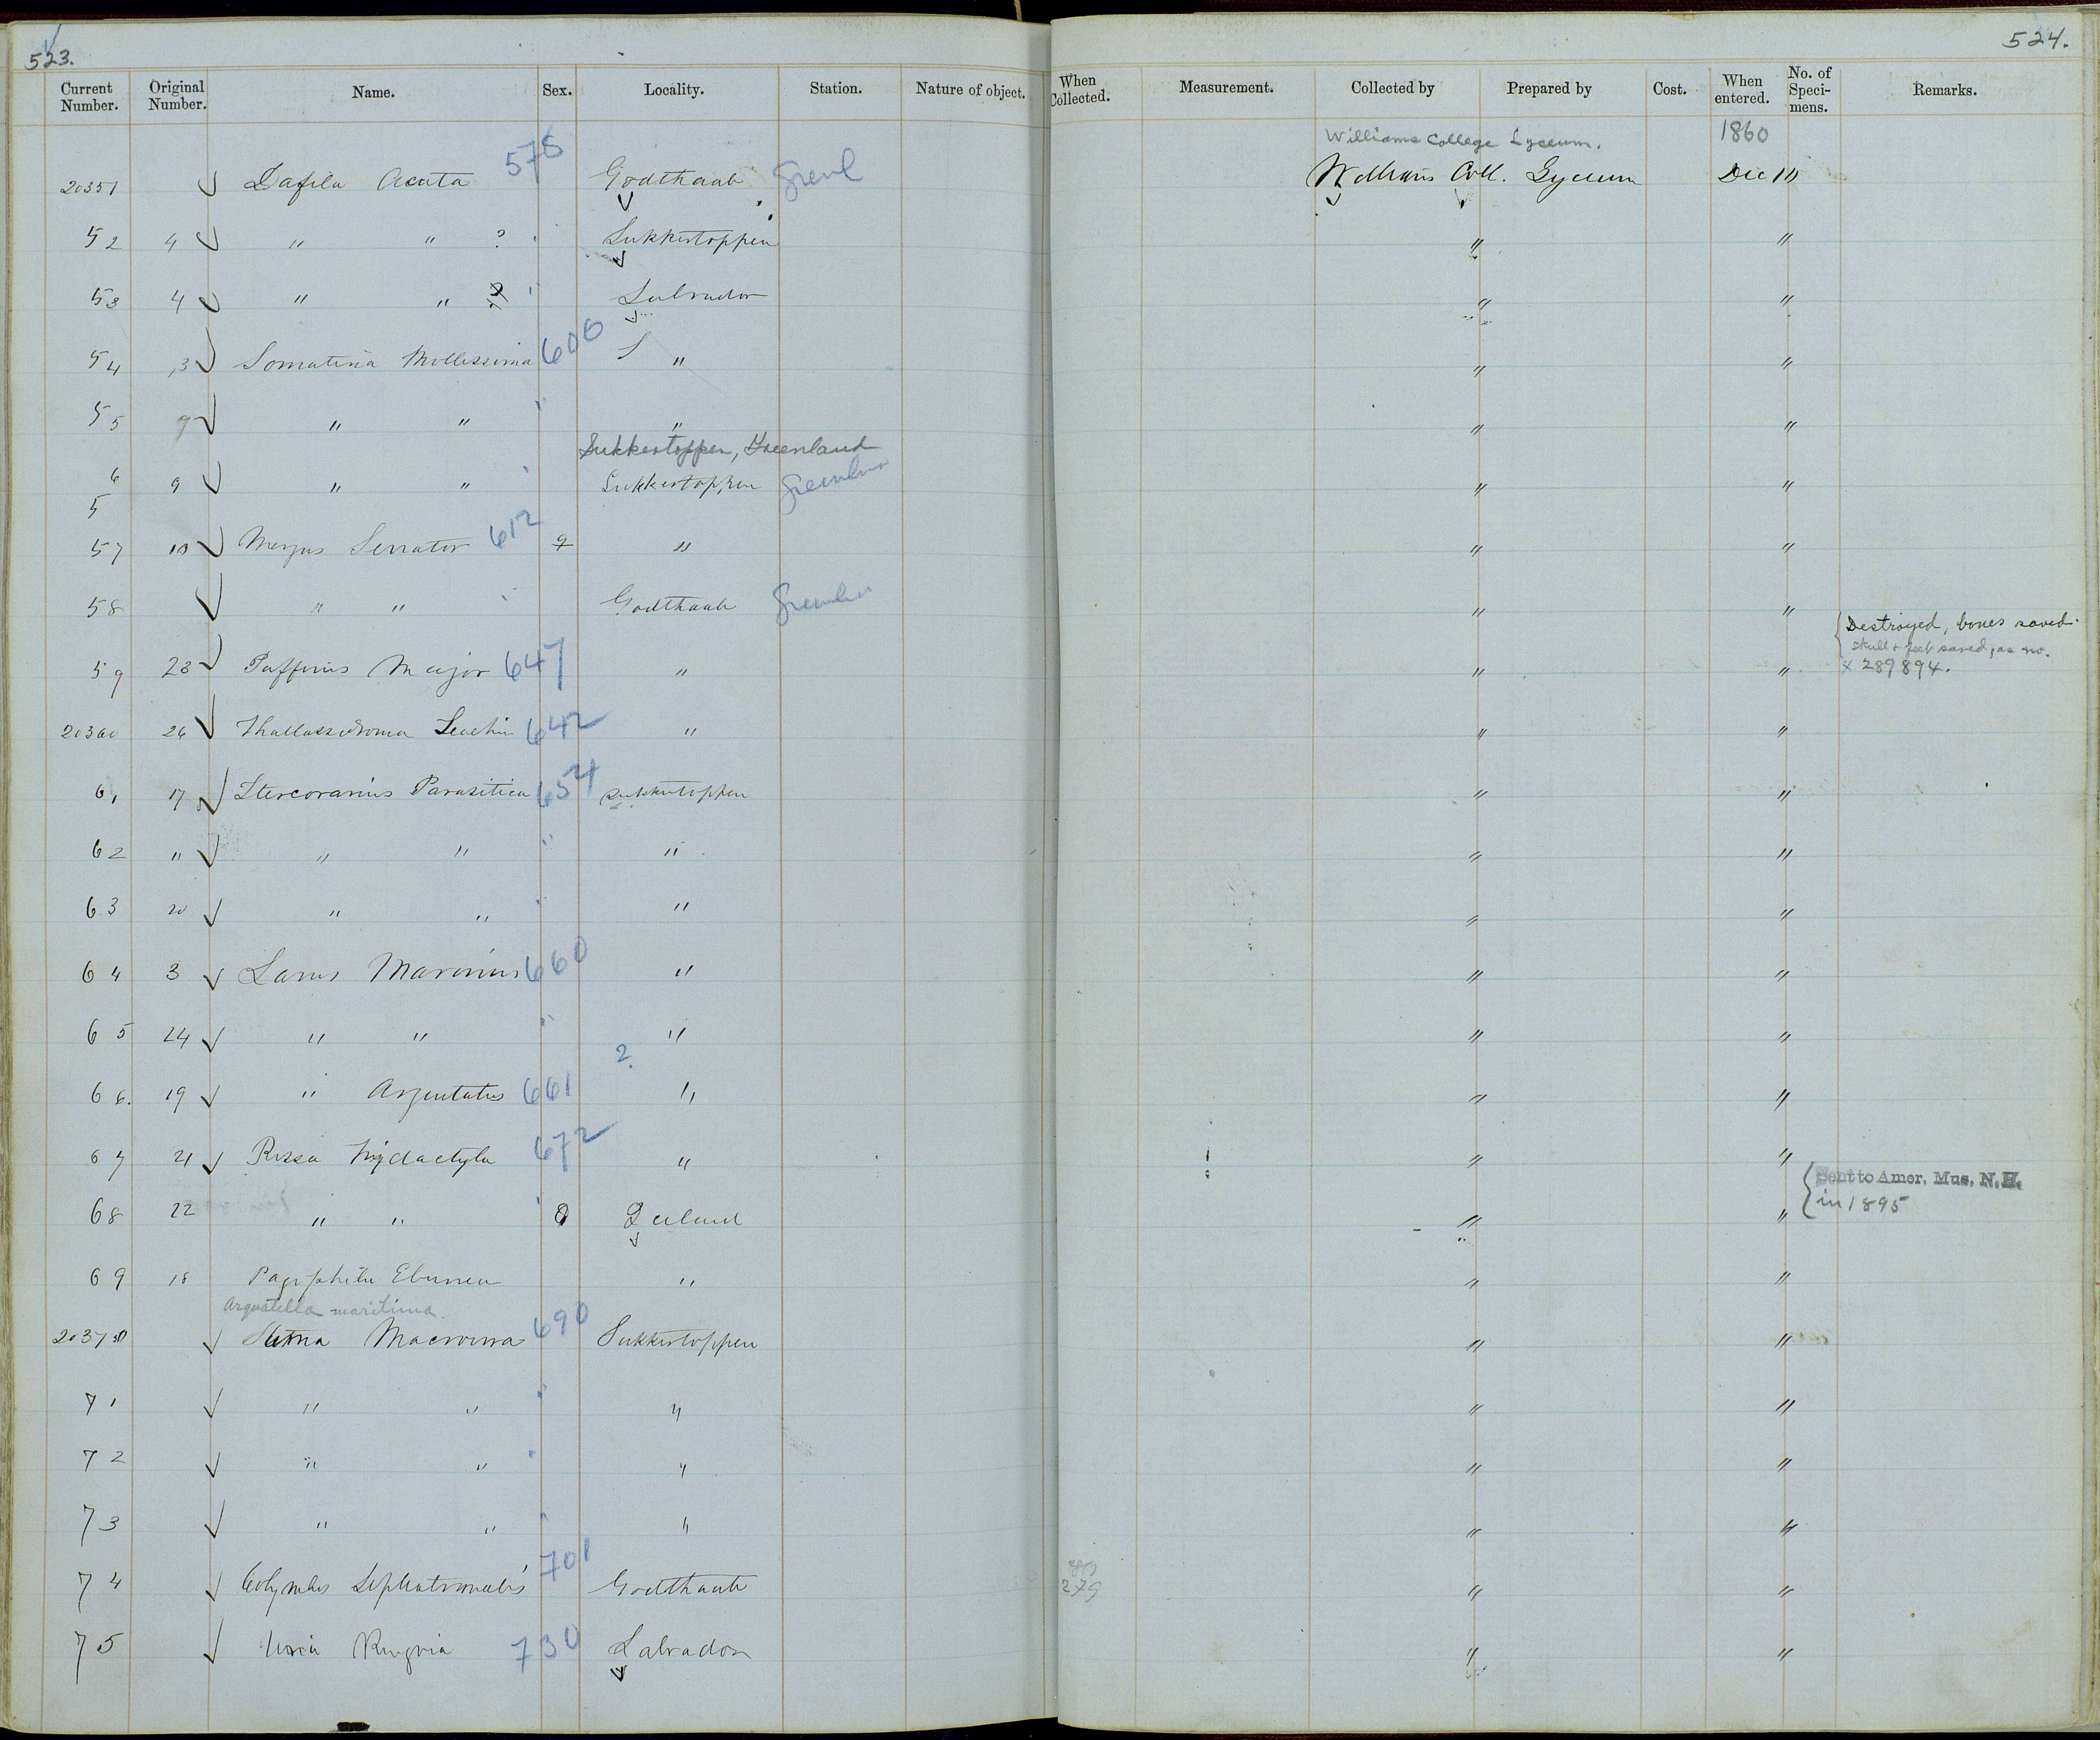 523.
524.
Current Number. Original Number. Name. Sex. Locality. Station. Nature of object. When Collected. Measurement. Collected by Prepared by Cost. When entered. No. of Specimens. Remarks.
Williams College Lyceum. 1860
20351 Dafila Acuta 578 Godthaab Greenl Williams Coll. Lyceum Dec 10
52 4 " " ? Sukkertoppen " "
53 4 " " ? Labrador " "
54 3 Somateria Mollissima 606 " " "
55 9 " " " " "
Sukkertoppen, Greenland
56 9 " " Sukkertoppen " "
57 10 Mergus Serrator 612 ♀ " " "
58 " " Godthaab " "
Destroyed, bones saved.
Skull & feet saved, as no.
59 23 Puffinus Major 647 " " " x 289894.
20360 26 Thallassidroma Leachii 642 " " "
61 17 Stercorarius Parasitica 654 Sukkertoppen " "
62 " " " " " "
63 20 " " " " "
64 3 Larus Marinus 660 " " "
65 24 " " " " "
?
66. 19 " Argentatus 661 " " "
67 21 Rissa tridactyla 672 " " "
Sent to Amer. Mus. N.H.
68 22 " " Zeeland " " in 1895
69 18 Pagophila Eburnea " " "
Arquatella maritima
20370 Sterna Macroura 690 Sukkertoppen " "
71 " " " " "
72 " " " " "
73 " " " " "
74 Colymbus Septentrionalis 701 Godthaab 279 " "
75 Uria Ringvia 730 Labrador " "